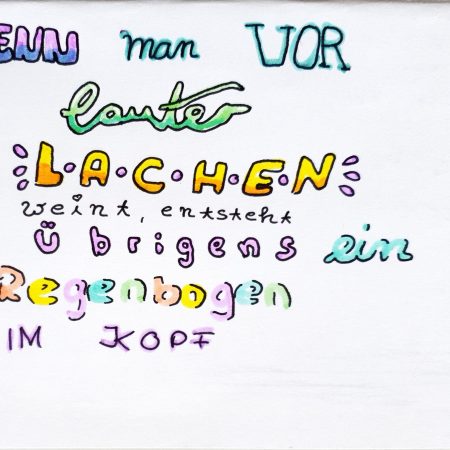 ENN man VOR
lauter
L·A·C·H·E·N
weint, entsteht
übrigens ein
Regenbogen
IM KOPF